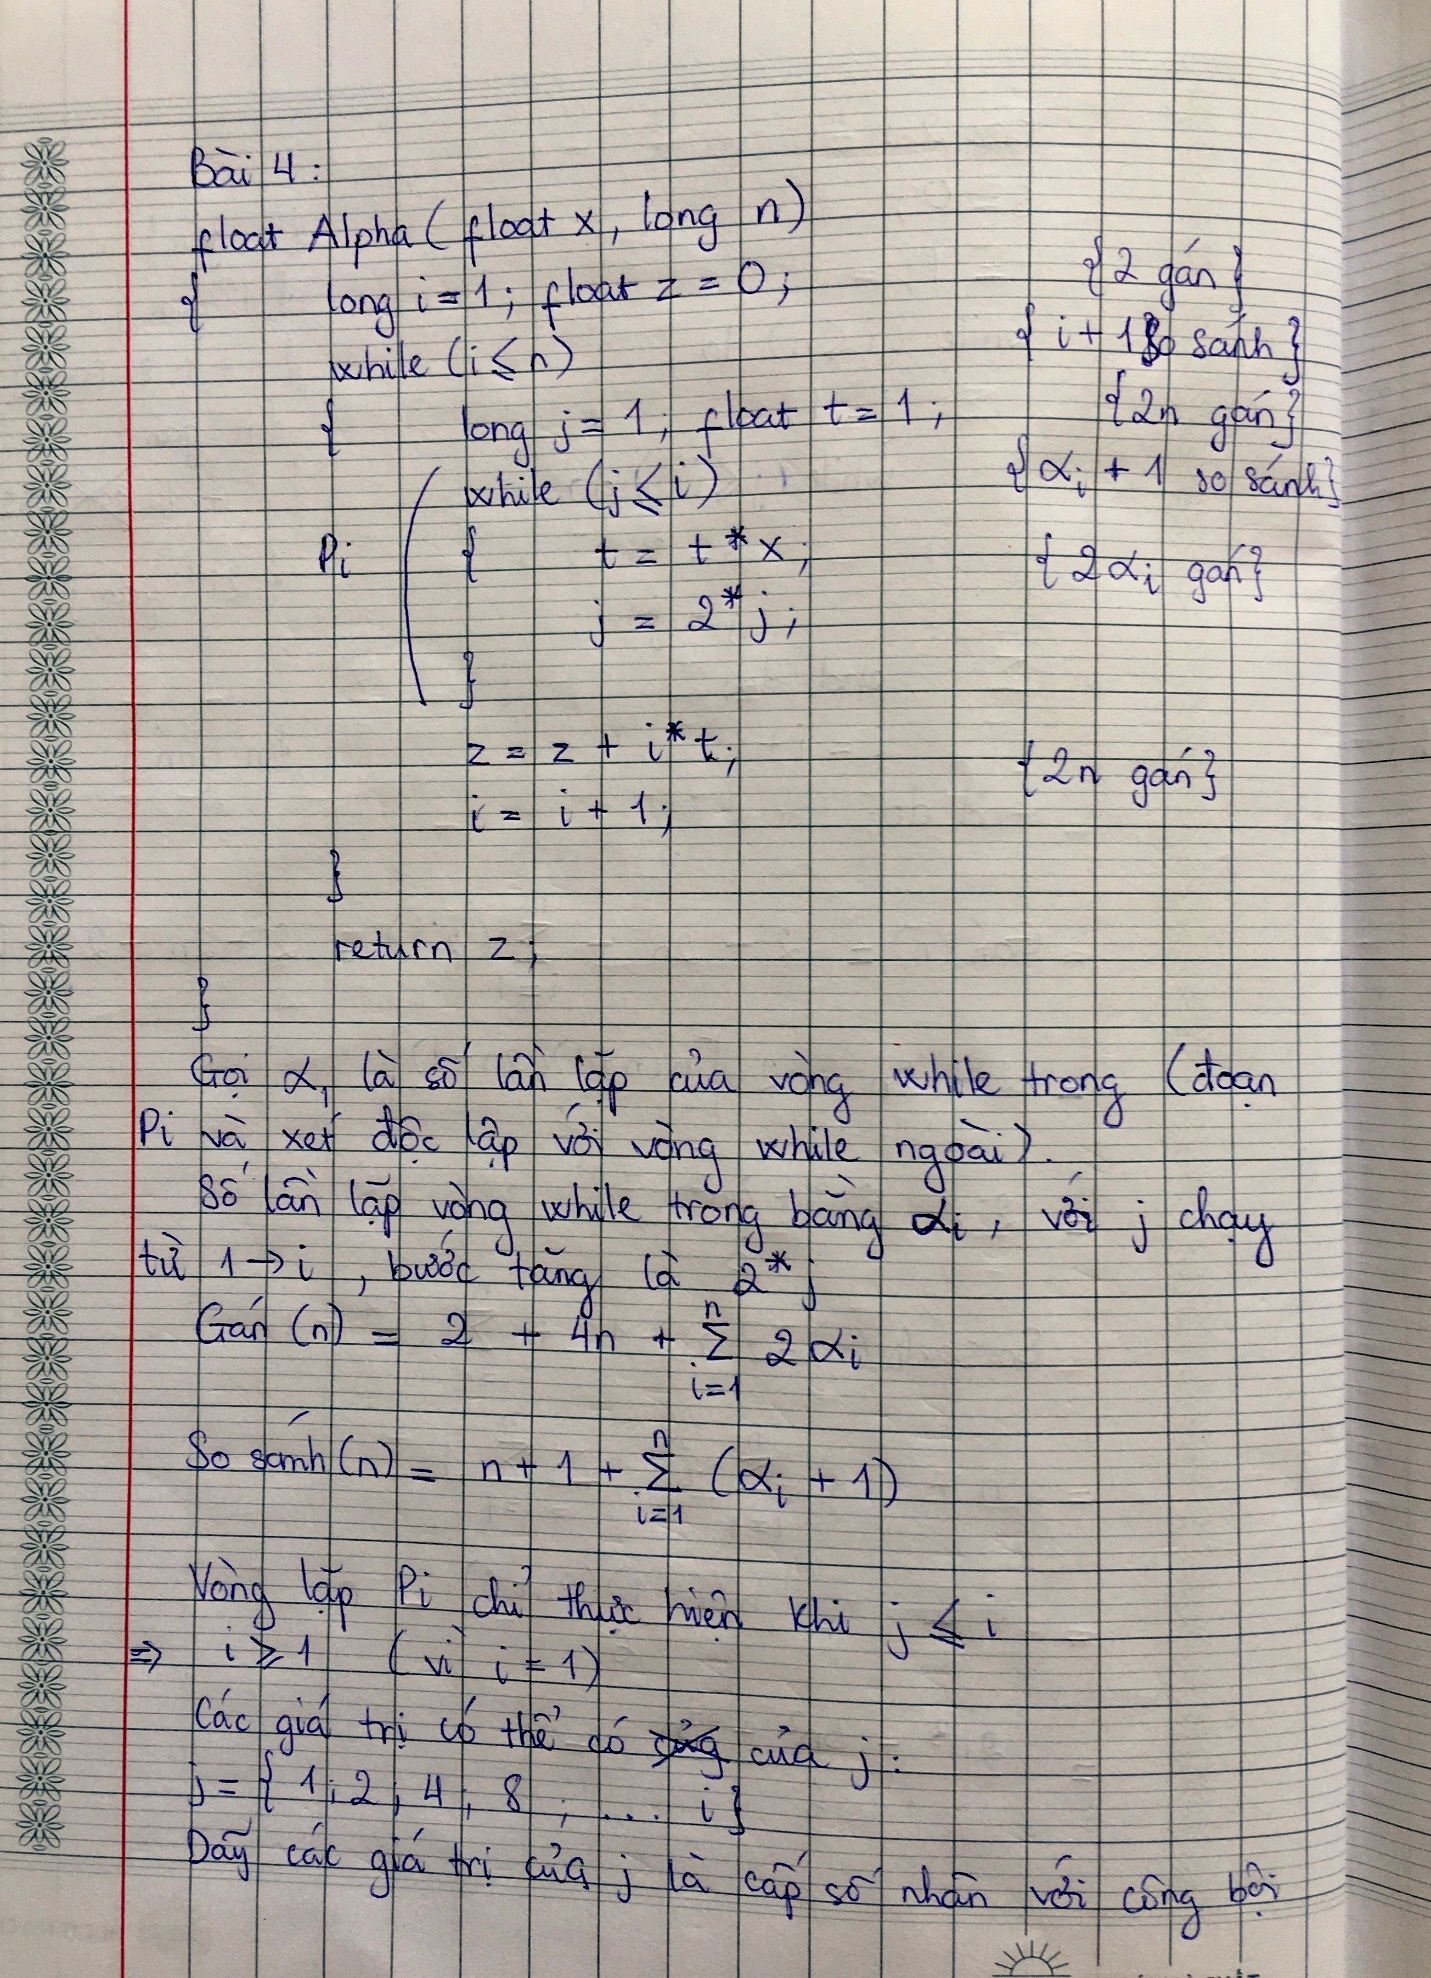 Bài 4:
float Alpha ( float x, long n)
{ long i = 1; float z = 0; {2 gán}
while (i ≤ n) { i + 1 so sánh}
{ long j = 1; float t = 1; {2n gán}
while (j ≤ i) {αi + 1 so sánh}
Pi { t = t * x; {2αi gán}
j = 2 * j;
}
z = z + i * t; {2n gán}
i = i + 1;
}
return z;
}
Gọi αi là số lần lặp của vòng while trong (đoạn
Pi và xét độc lập với vòng while ngoài).
Số lần lặp vòng while trong bằng αi, với j chạy
từ 1 → i, bước tăng là 2 * j
Gán (n) = 2 + 4n + ∑ⁿᵢ₌₁ 2αi
So sánh (n) = n + 1 + ∑ⁿᵢ₌₁ (αi + 1)
Vòng lặp Pi chỉ thực hiện khi j ≤ i
=> i ≥ 1 (vì i = 1)
Các giá trị có thể có của j:
j = { 1; 2; 4; 8; ... i}
Dãy các giá trị của j là cấp số nhân với công bội